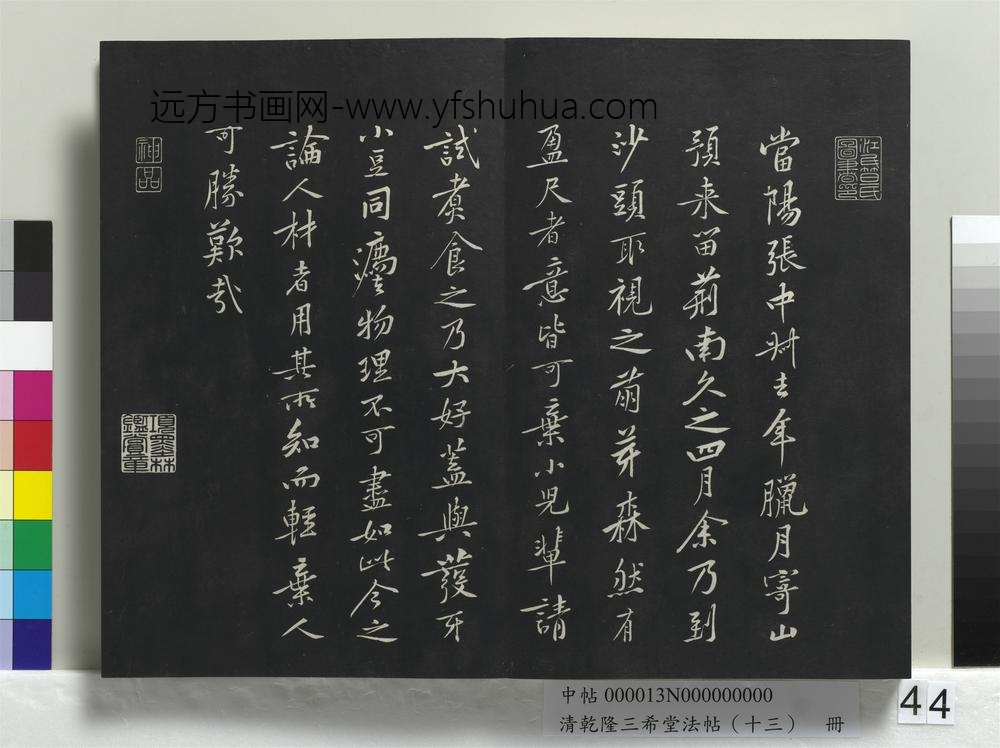 當陽張中叔去年臘月寄山
預来留荊南久之四月余乃到
沙頭取視之萌芽森然有
盈尺者意皆可棄小兒輩請
試煮食之乃大好蓋與發牙
小豆同㿈物理不可盡如此今之
論人材者用其所知而輕棄人
可勝歎哉
神品
项墨林鑑賞章
远方书画网-www.yfshuhua.com
中帖 000013N000000000
清乾隆三希堂法帖（十三） 冊
44